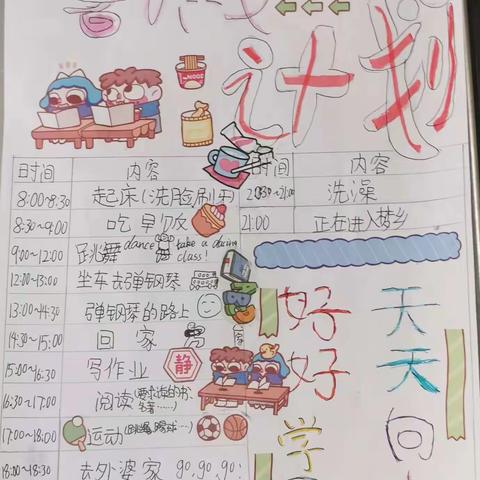 计划
时间 内容 时间 内容
8:00~8:30 起床(洗脸刷牙) 洗澡
8:30~9:00 吃早饭 21:00 正在进入梦乡
9:00~12:00 跳舞 dance take a dacing class!
12:00~13:00 坐车去弹钢琴
13:00~14:30 弹钢琴的路上
14:30~15:00 回家
15:00~16:30 写作业 静
16:30~17:00 阅读(要求读的书、
17:00~18:00 运动(跳绳、踢球…)
18:00~18:30 去外婆家 go,go,go!
好 天
好 天
学 向